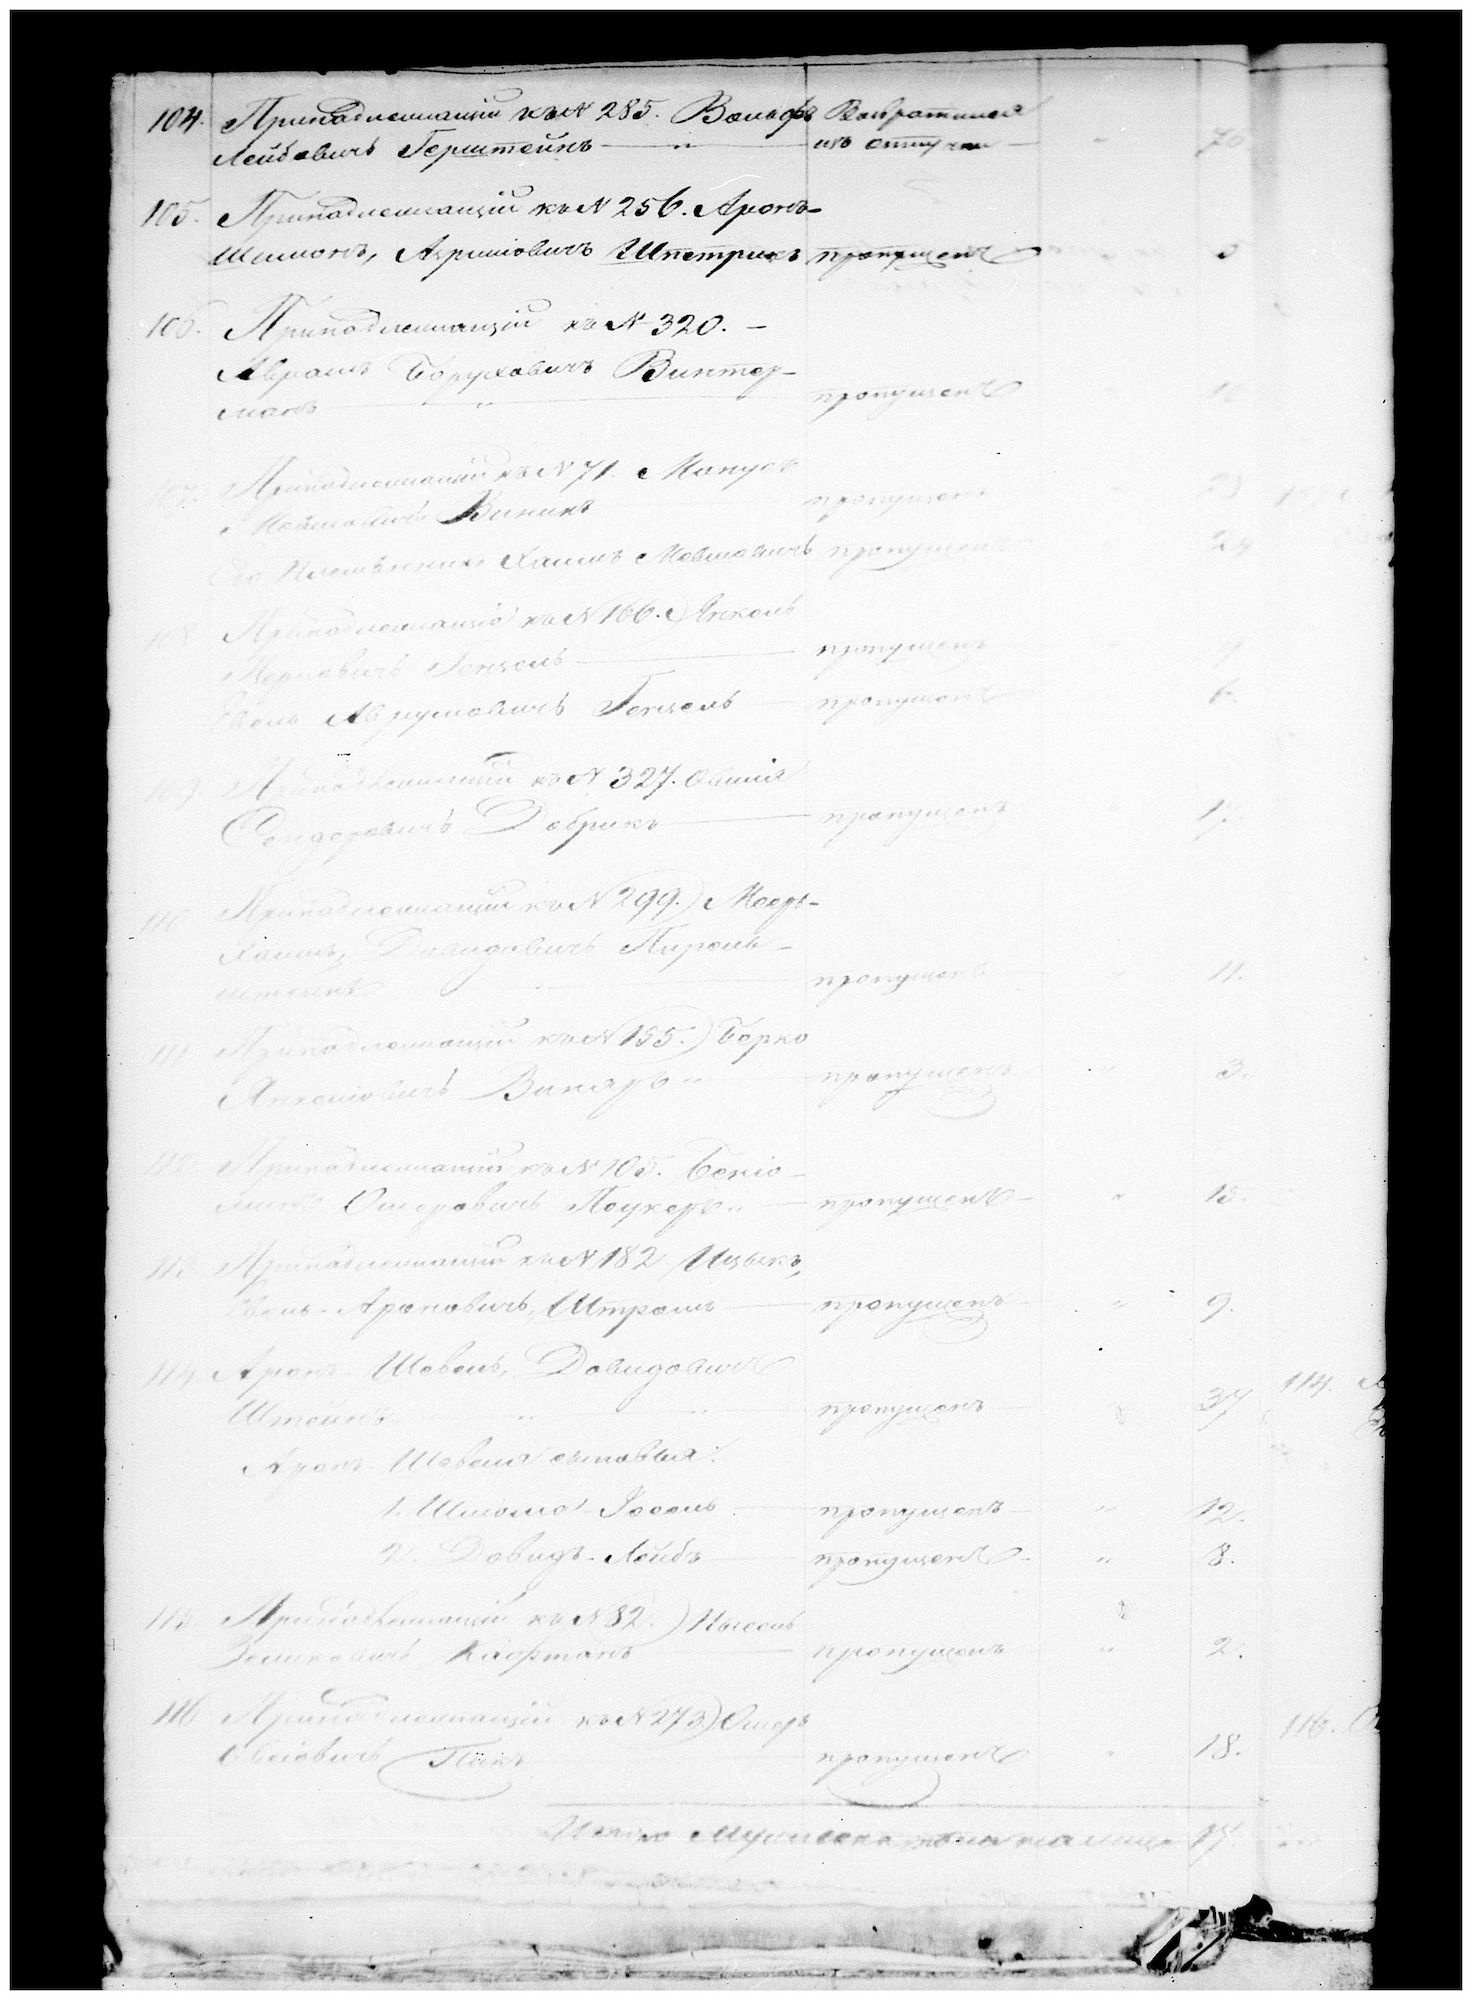 104. Принадлежащій къ № 285. Вольфъ Возвратился
Лейбовичъ Герштейнъ — " — изъ отлучки — " 70
105. Принадлежащій къ № 256. Аронъ-
Шимонъ, Абрамовичъ Шпетрикъ пропущенъ
106. Принадлежащій къ № 320. —
Абрамъ Борухавичъ Винтер-
манъ — " — пропущенъ 16
107. Принадлежащій къ № 71. Манусъ
Мошковичъ Виникъ пропущенъ " 23
Его племянникъ Хаимъ Мовшовичъ пропущенъ 24
108. Принадлежащій къ № 166. Янкель
Герцель — пропущенъ "
Авраумовичъ Герцель — пропущенъ 6.
109. Принадлежащій къ № 327. Овшія
Сендеровичъ Добрикъ — пропущенъ " 17.
110. Принадлежащій къ № 299.) Меер-
Хаимъ, Давидовичъ Пирель-
штейнъ " — пропущенъ " 11.
111. Принадлежащій къ № 155.) Берко
Янкелювичъ Виняръ " пропущенъ " 3.
112. Принадлежащій къ № 105. Беніо-
минъ Ошеровичъ Паукеръ " — пропущенъ — " 15.
113. Принадлежащій къ № 182 Ицыкъ,
Ароновичъ, Штромъ — пропущенъ — " 9.
114. Аронъ Шевель, Давидовичъ 114.
Штейнъ " " пропущенъ — 37
Аронъ-Шевеля сыновья:
1. Шлома-Іосель — пропущенъ — " 12.
2. Давидъ-Лейбъ — пропущенъ — " 8.
115. Принадлежащій къ № 82.) Нысель
Зеликовичъ Кафтанъ — пропущенъ " 2.
116 Принадлежащій къ № 273) Ошеръ 116.
Овсіовичъ Пикъ — пропущенъ " 18.
Итого Мужеска пола на лицо 17.